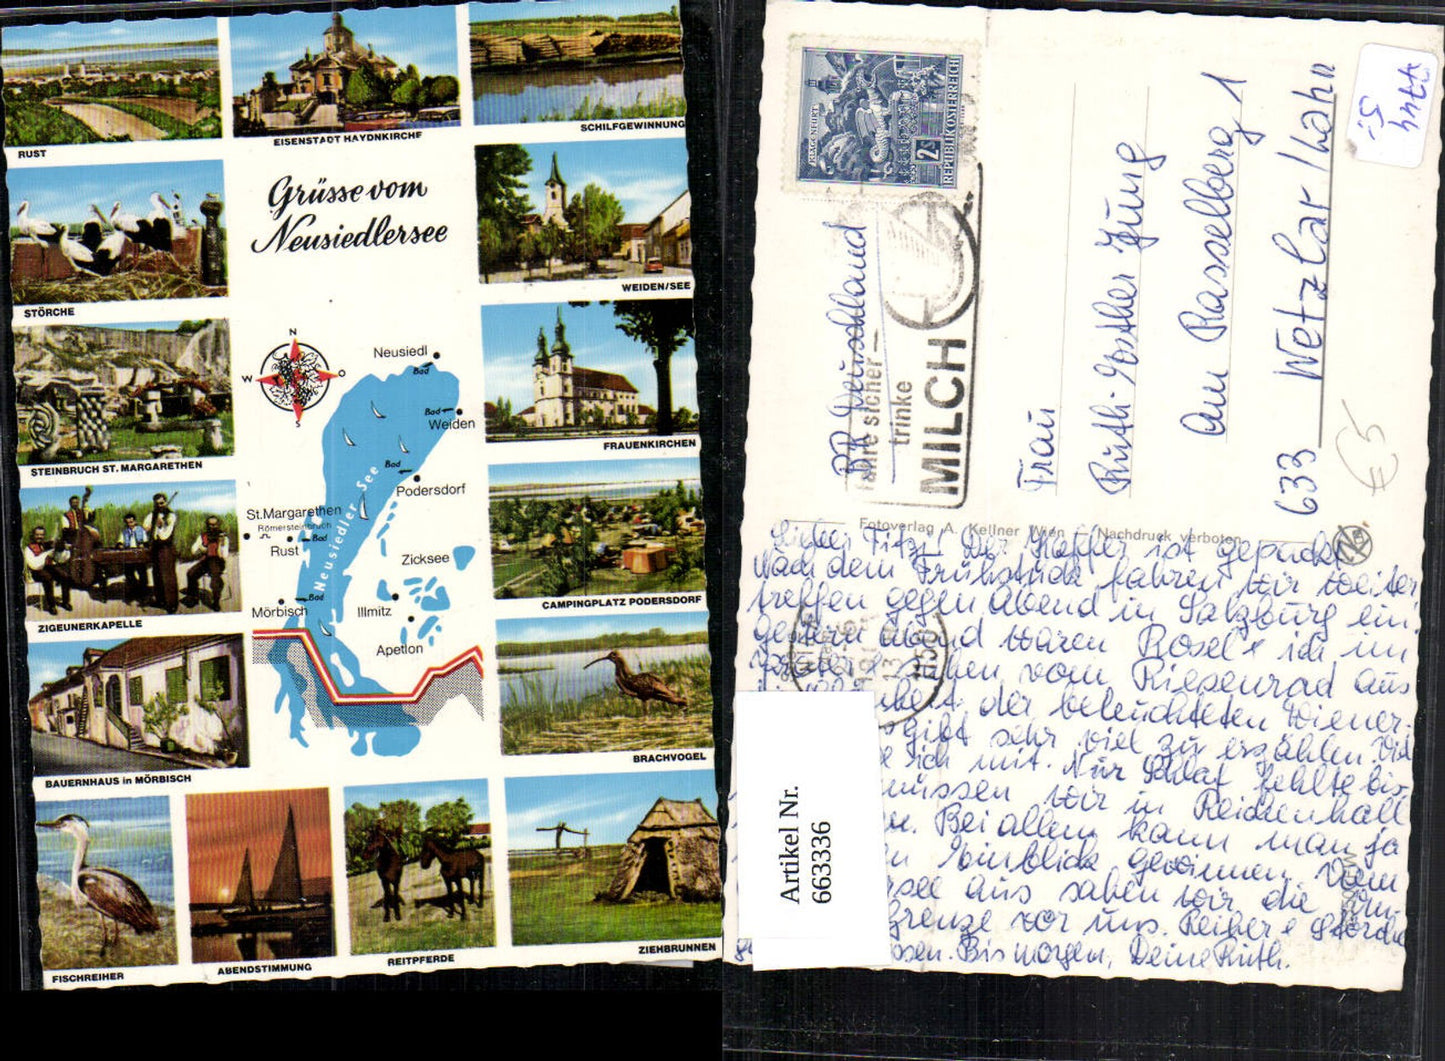 RUST
EISENSTADT HAYDNKIRCHE
SCHILFGEWINNUNG
Grüsse vom
Neusiedlersee
STÖRCHE
WEIDEN/SEE
STEINBRUCH ST. MARGARETHEN
FRAUENKIRCHEN
ZIGEUNERKAPELLE
CAMPINGPLATZ PODERSDORF
BAUERNHAUS in MÖRBISCH
BRACHVOGEL
FISCHREIHER
ABENDSTIMMUNG
REITPFERDE
ZIEHBRUNNEN
N
W
O
S
Neusiedl
Bad
Bad
Weiden
Bad
Podersdorf
St.Margarethen
Römersteinbruch
Rust
Bad
Neusiedler See
Zicksee
Mörbisch
Bad
Illmitz
Apetlon
KLAGENFURT
2S
REPUBLIK ÖSTERREICH
fahre sicher –
trinke
MILCH
BR Deutschland
Frau
Ruth-Esther Jung
Am Rasselberg 1
633 Wetzlar/Lahn
€5
Fotoverlag A. Kellner Wien Nachdruck verboten
Lieber Fitz! Der Koffer ist gepackt
Nach dem Frühstück fahren wir weiter
treffen gegen Abend in Salzburg ein.
gestern Abend waren Rosel + ich im
Prater + sahen vom Riesenrad aus
der beleuchteten Wiener-
gibt sehr viel zu erzählen.
ich mit. Nur Schlaf fehlte bis-
müssen wir in Reichenhall
Bei allem kann man ja
Einblick gewinnen. Vom
see aus sahen wir die
grenze vor uns. Reiher + Störche
Bis morgen, Deine Ruth.
Artikel Nr.
663336